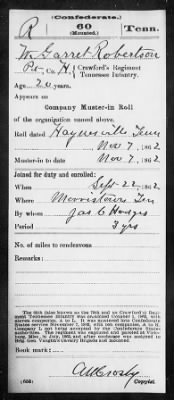 (Confederate.)
R 60 Tenn.
(Mounted.)
W. Garret Robertson
Pvt, Co. H, Crawford's Regiment
Tennessee Infantry.
Age 20 years.
Appears on
Company Muster-in Roll
of the organization named above.
Roll dated Haynesville Tenn
Nov 7, 1862
Muster-in to date Nov 7, 1862
Joined for duty and enrolled:
When Sept 22, 1862
Where Morristown Ten
By whom Jas. C. Hodges
Period 3 yrs
No. of miles to rendezvous
Remarks:
Book mark:
A. W. Crosby
Copyist.